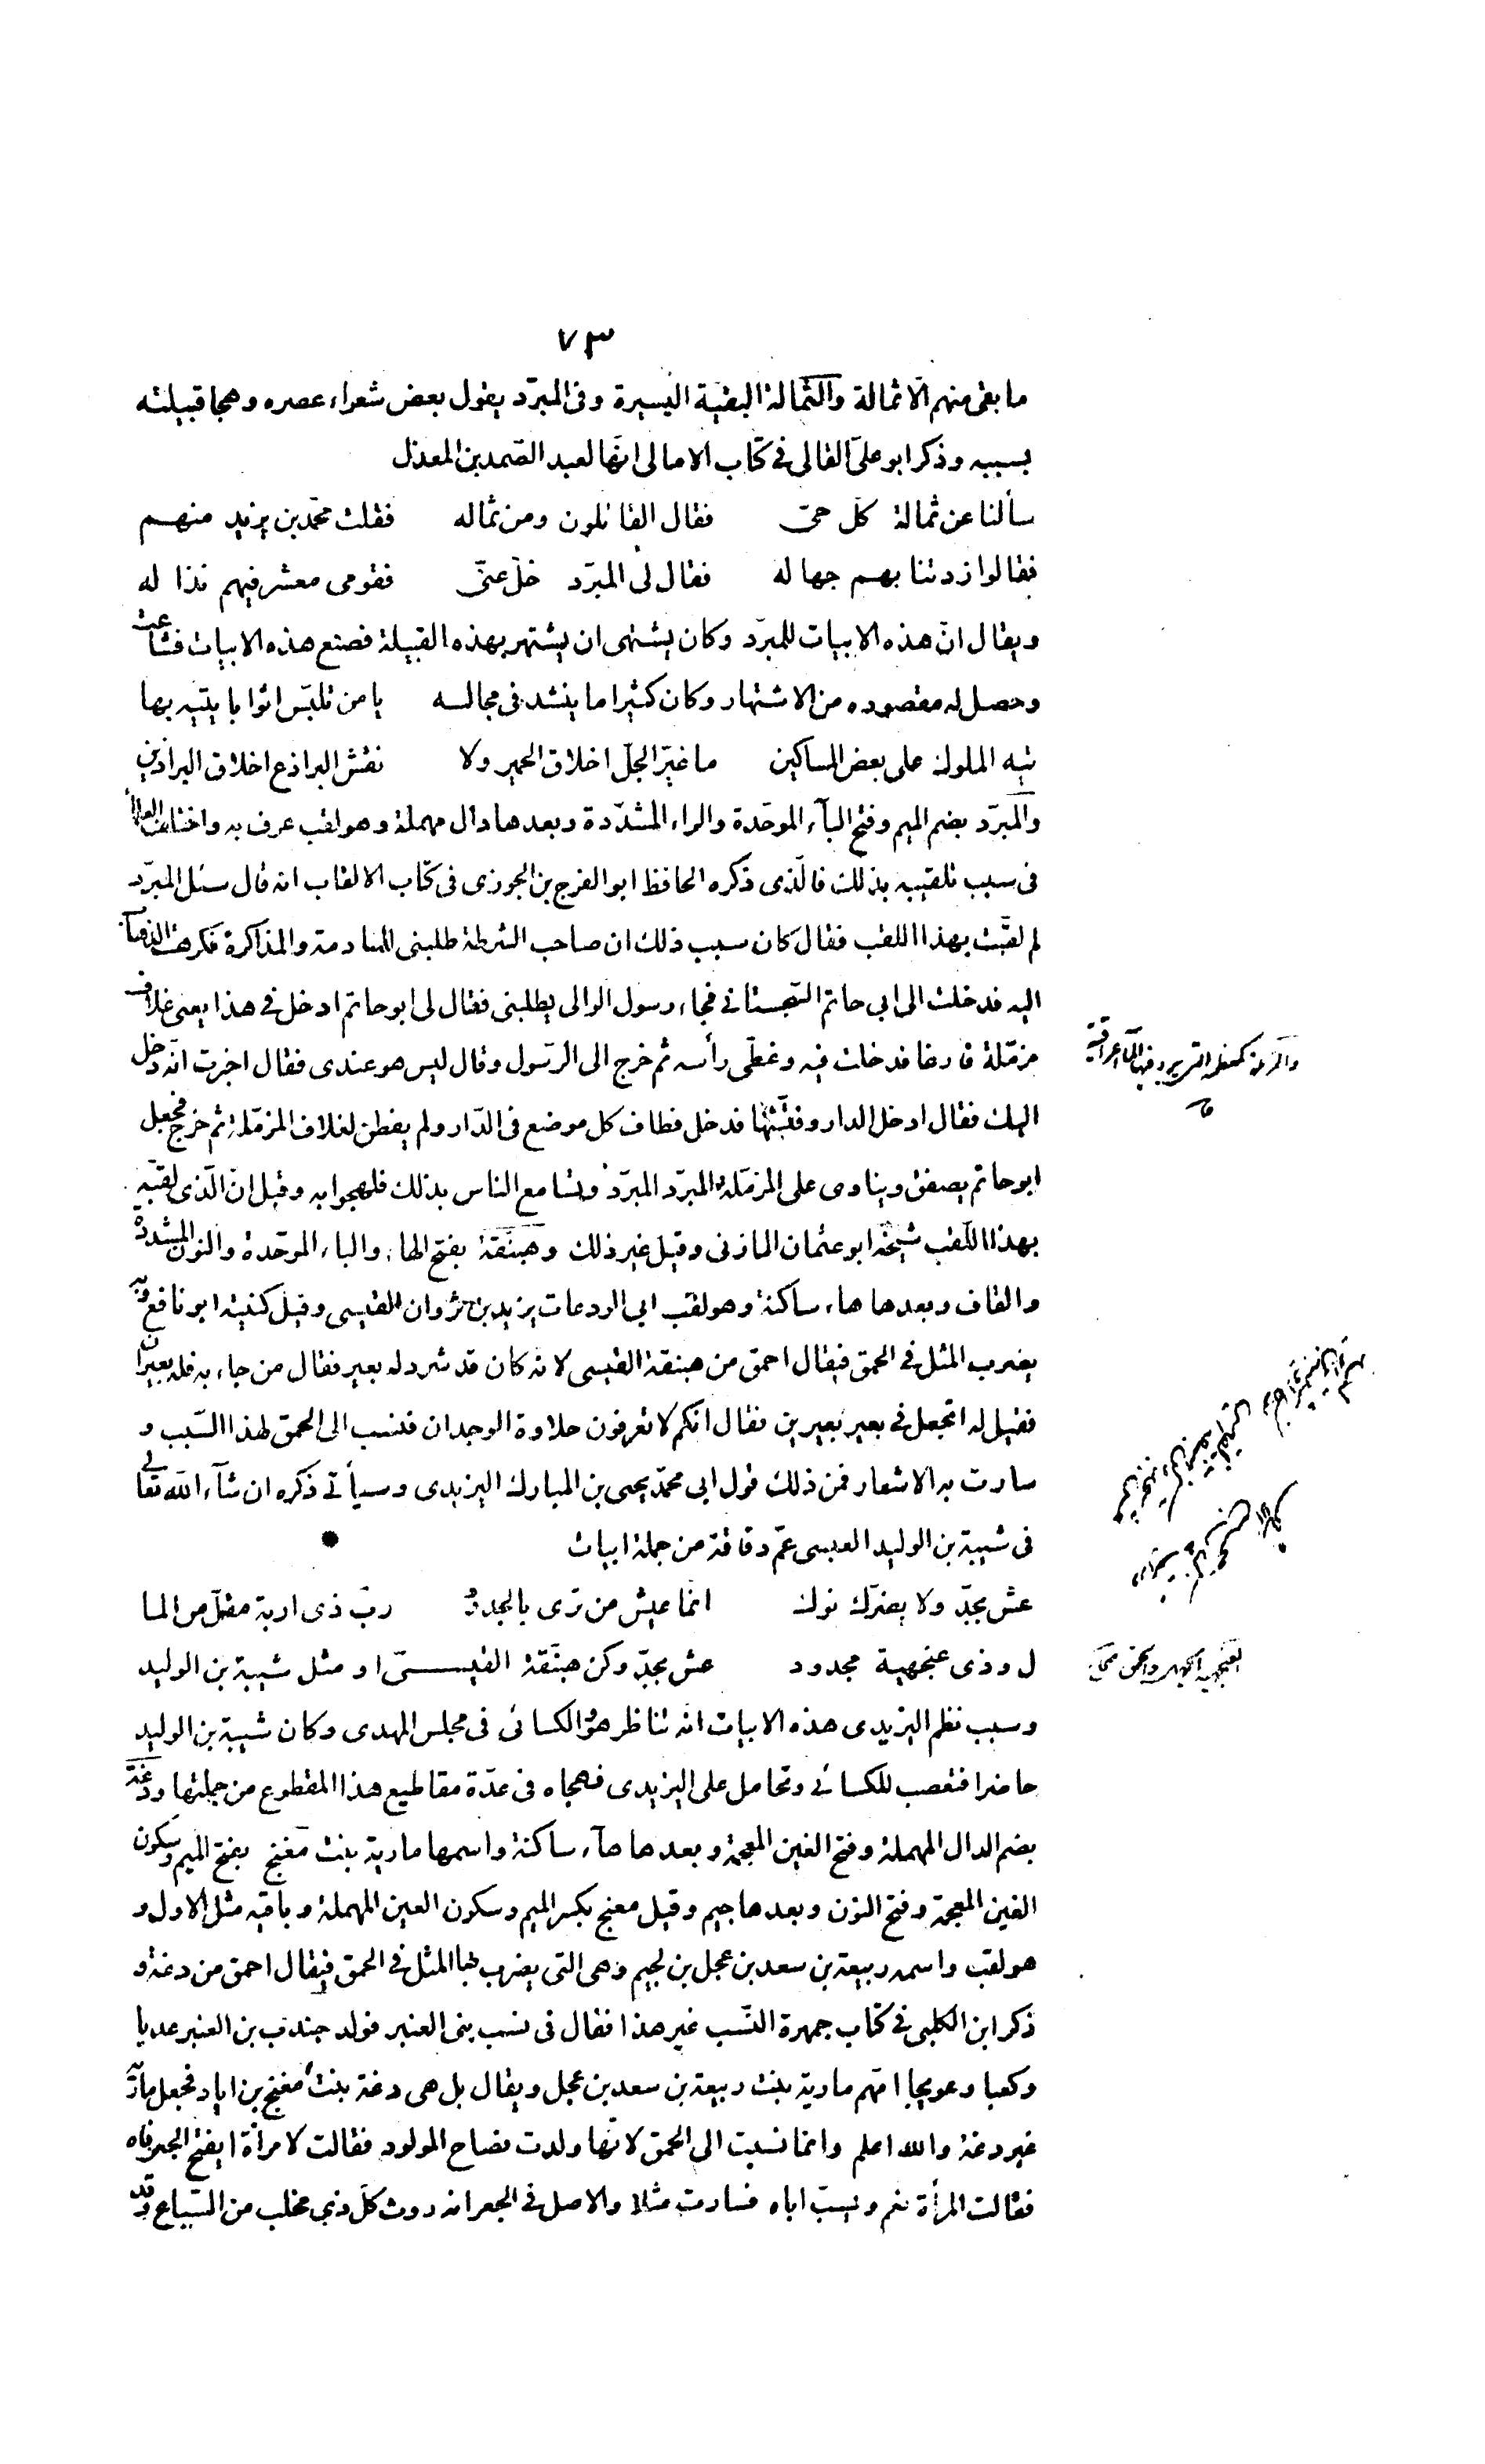 ٧٣
ما بقى منهم الّا ثمالة والثمالة البقيّة اليسيرة وفى المبرّد يقول بعض شعراء عصره وهجا قبيلته
بسببه وذكر ابو علىّ القالى فى كتاب الامالى انّها لعبد الصّمد بن المعذل
سألنا عن ثمالة كل حىّ فقال القائلون ومن ثماله فقلت محمّد بن يزيد منهم
فقالوا زدتنا بهم جهاله فقال لى المبرّد خلّ عنّى فقومى معشر فيهم نذاله
ويقال انّ هذه الابيات للمبرّد وكان يشتهى ان يشتهر بهذه القبيلة فصنع هذه الابيات فشاعت
وحصل له مقصوده من الاشتهار وكان كثيرا ما ينشد فى مجالسه يا من تلبّس اثوابا يتيه بها
تيه الملوك على بعض المساكين ما غيّر الجلّ اخلاق الحمير ولا نقش البراذع اخلاق البراذين
والمبرّد بضم الميم وفتح البآء الموحّدة والراء المشدّدة وبعدها دال مهملة وهو لقب عرف به واختلف العلماء
فى سبب تلقيبه بذلك فالّذى ذكره الحافظ ابو الفرج بن الجوزى فى كتاب الالقاب انه قال سئل المبرّد
لم لقّبت بهذا اللقب فقال كان سبب ذلك ان صاحب الشرطة طلبنى للمنادمة والمذاكرة فكرهت الذهاب
اليه فدخلت الى ابى حاتم السّجستانى فجاء رسول الوالى يطلبنى فقال لى ابو حاتم ادخل فى هذا يعنى غلاف
مزمّلة فارغا فدخلت فيه وغطّى رأسه ثم خرج الى الرّسول وقال ليس هو عندى فقال اخبرت انّه دخل
اليك فقال ادخل الدار وفتّشها فدخل فطاف كل موضع فى الدّار ولم يفطن لغلاف المزمّلة ثم خرج فجعل
ابو حاتم يصفق وينادى على المزمّلة المبرّد المبرّد وتسامع الناس بذلك فلهجوا به وقيل انّ الّذى لقّبه
بهذا اللّقب شيخه ابو عثمان المازنى وقيل غير ذلك وهبنّقة بفتح الهاء والباء الموحّدة والنون المشددة
والقاف وبعدها هاء ساكنة وهو لقب ابى الودعات يزيد بن ثروان القيسى وقيل كنيته ابو نافع وبه
يضرب المثل فى الحمق فيقال احمق من هبنقة القيسى لانه كان قد شرد له بعير فقال من جاء به فله بعيران
فقيل له اتجعل فى بعير بعيرين فقال انكم لا تعرفون حلاوة الوجدان فنسب الى الحمق لهذا السّبب و
سارت به الاشعار فمن ذلك قول ابى محمّد يحيى بن المبارك اليزيدى وسيأتى ذكره ان شآء اللّه تعالى
فى شيبة بن الوليد العبسى عمّ دقاقة من جملة ابيات
عش بجدّ ولا يضرّك نوك انّما عيش من ترى بالجدود ربّ ذى اربة مقلّ من الما
ل وذى عنجهية مجدود عش بجدّ وكن هبنّقة القيسىّ او مثل شيبة بن الوليد
وسبب نظم اليزيدى هذه الابيات انّه تناظر هو والكسائى فى مجلس المهدى وكان شيبة بن الوليد
حاضرا فتعصب للكسائى وتحامل على اليزيدى فهجاه فى عدّة مقاطيع هذا المقطوع من جملتها ودغة
بضم الدال المهملة وفتح الغين المعجمة وبعدها هآء ساكنة واسمها مارية بنت مغنج بفتح الميم وسكون
الغين المعجمة وفتح النون وبعدها جيم وقيل معنج بكسر الميم وسكون العين المهملة وباقيه مثل الاول و
هو لقب واسمه ربيعة بن سعد بن عجل بن لجيم وهى التى يضرب بها المثل فى الحمق فيقال احمق من دغة و
ذكر ابن الكلبى فى كتاب جمهرة النّسب غير هذا فقال فى نسب بنى العنبر فولد جندب بن العنبر عديا
وكعبا وعويجا امّهم مارية بنت ربيعة بن سعد بن عجل ويقال بل هى دغة بنت مغنج بن اياد فجعل مارية
غير دغة والله اعلم وانما نسبت الى الحمق لانّها ولدت فصاح المولود فقالت لامرأة ايفتح الجعر فاه
فقالت المرأة نعم ويسبّ اباه فسارت مثلا والاصل فى الجعر انه روث كلّ ذى مخلب من السّباع وقد